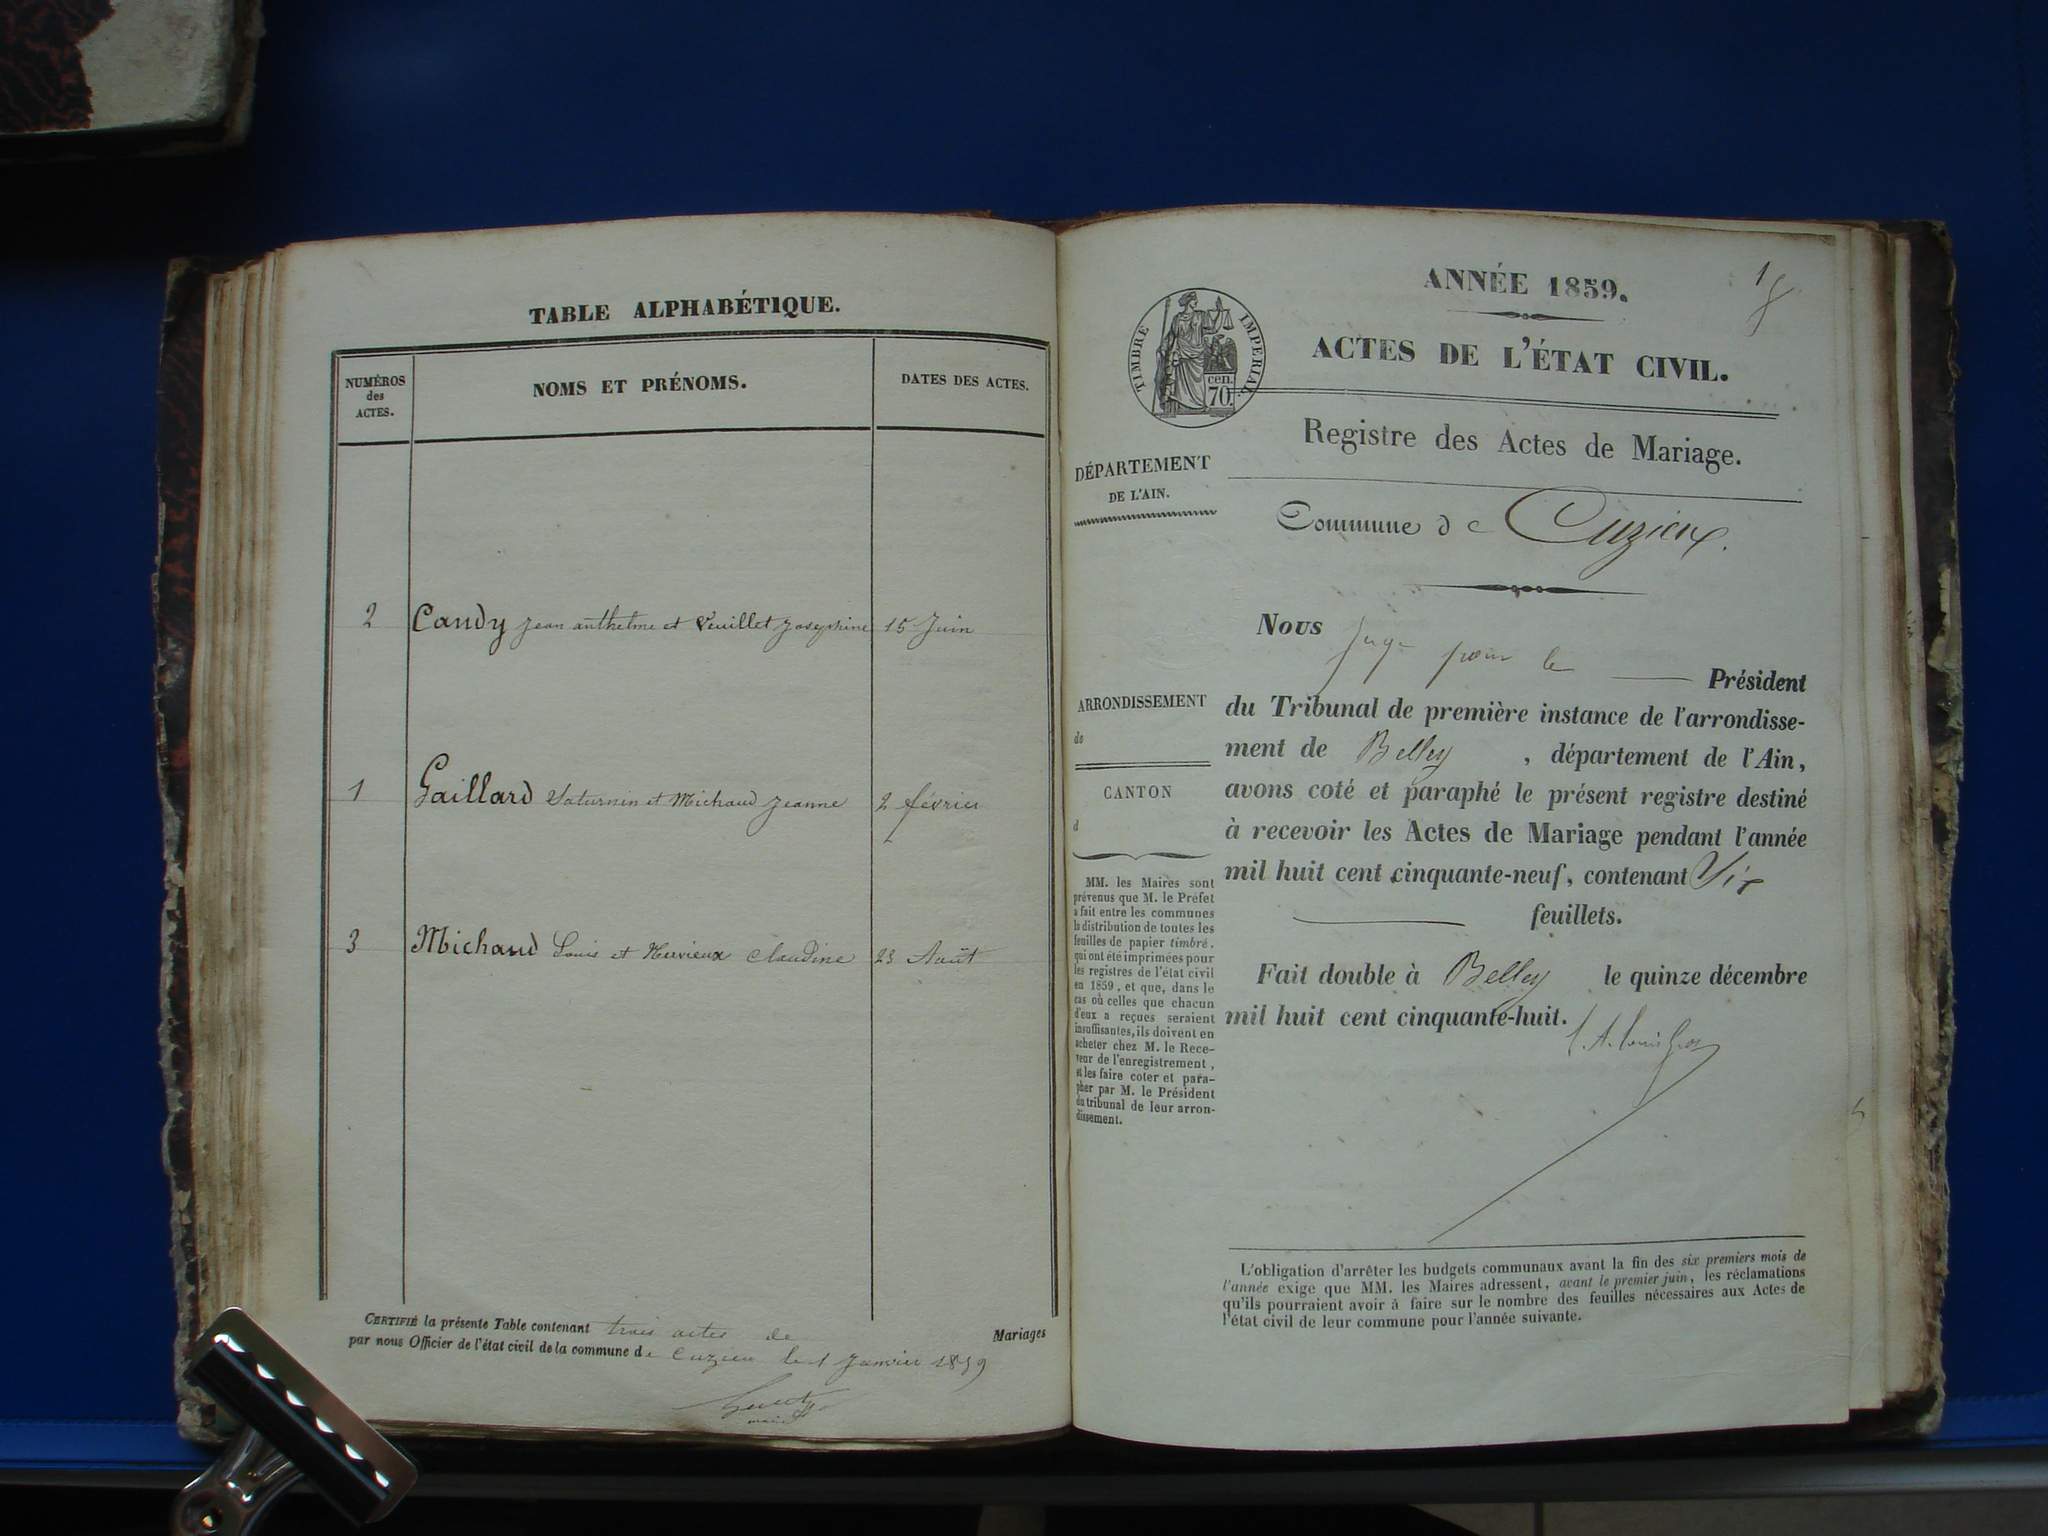 TABLE ALPHABÉTIQUE.
NUMÉROS
des
ACTES.
NOMS ET PRÉNOMS.
DATES DES ACTES.
2 Candy Jean anthelme et Veuillet Josephine 15 Juin
1 Gaillard Saturnin et Michaud Jeanne 2 février
3 Michaud Louis et Hervieux Claudine 23 Août
CERTIFIÉ la présente Table contenant trois actes de Mariages
par nous Officier de l'état civil de la commune de Cuzieu le 1 Janvier 1859
maire
ANNÉE 1859.
1
ACTES DE L'ÉTAT CIVIL.
TIMBRE IMPERIAL
cen.
70.
Registre des Actes de Mariage.
DÉPARTEMENT
DE L'AIN.
Commune de Cuzieu.
Nous Juge pour le Président
du Tribunal de première instance de l'arrondisse-
ment de Belley , département de l'Ain,
avons coté et paraphé le présent registre destiné
à recevoir les Actes de Mariage pendant l'année
mil huit cent cinquante-neuf, contenant Six
feuillets.
Fait double à Belley le quinze décembre
mil huit cent cinquante-huit.
ARRONDISSEMENT
de
CANTON
d
MM. les Maires sont
prévenus que M. le Préfet
a fait entre les communes
la distribution de toutes les
feuilles de papier timbré,
qui ont été imprimées pour
les registres de l'état civil
en 1859, et que, dans le
cas où celles que chacun
d'eux a reçues seraient
insuffisantes, ils doivent en
acheter chez M. le Rece-
veur de l'enregistrement,
et les faire coter et para-
pher par M. le Président
du tribunal de leur arron-
dissement.
L'obligation d'arrêter les budgets communaux avant la fin des six premiers mois de
l'année exige que MM. les Maires adressent, avant le premier juin, les réclamations
qu'ils pourraient avoir à faire sur le nombre des feuilles nécessaires aux Actes de
l'état civil de leur commune pour l'année suivante.